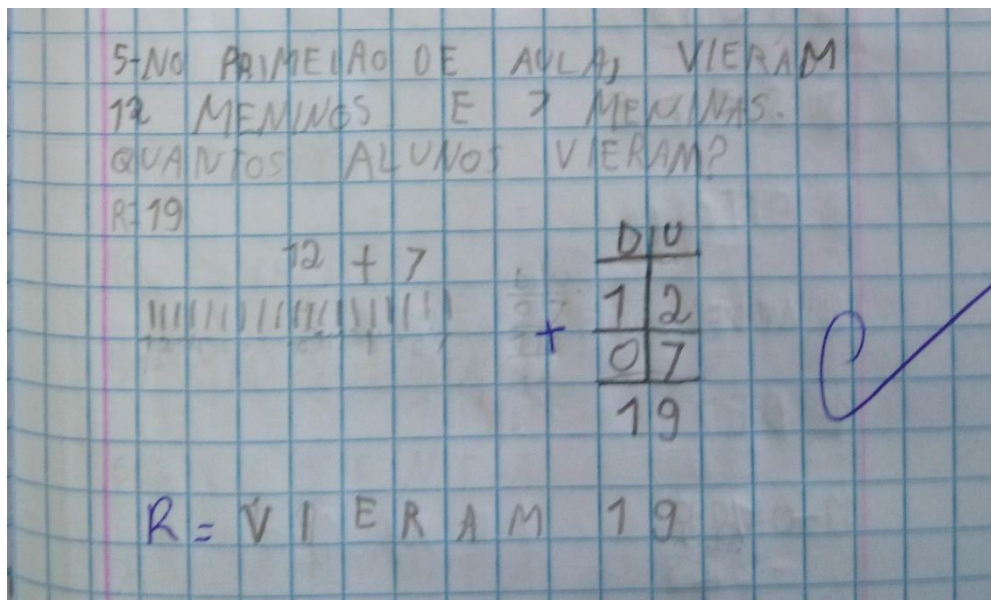 5-NO PRIMEIAO DE AULA, VIERAM
12 MENINOS E 7 MENINAS.
QUANTOS ALUNOS VIERAM?
R=19
12 + 7
D U
1 2
+ 0 7
1 9
R = VIERAM 19